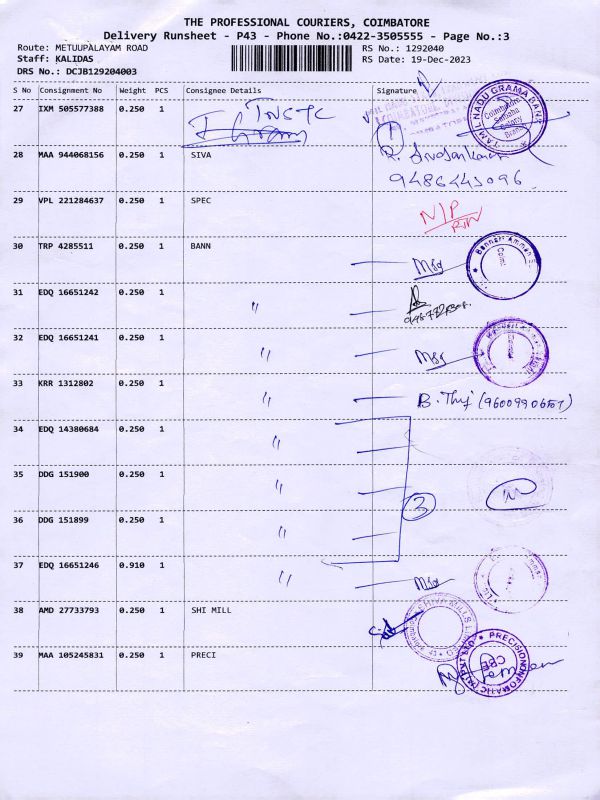 THE PROFESSIONAL COURIERS, COIMBATORE
Delivery Runsheet - P43 - Phone No.:0422-3505555 - Page No.:3
Route: METUUPALAYAM ROAD
RS No.: 1292040
Staff: KALIDAS
RS Date: 19-Dec-2023
DRS No.: DCJB129204003
S No Consignment No Weight PCS Consignee Details Signature
27 IXM 505577388 0.250 1
TAMILNADU GRAMA BANK
Coimbatore
Colony
Branch
28 MAA 944068156 0.250 1 SIVA
9486443096
29 VPL 221284637 0.250 1 SPEC N/P
30 TRP 4285511 0.250 1 BANN
31 EDQ 16651242 0.250 1 〃
32 EDQ 16651241 0.250 1 〃
33 KRR 1312802 0.250 1 〃
34 EDQ 14380684 0.250 1 〃
35 DDG 151900 0.250 1 〃
3
36 DDG 151899 0.250 1 〃
37 EDQ 16651246 0.910 1 〃
38 AMD 27733793 0.250 1 SHI MILL
39 MAA 105245831 0.250 1 PRECI
CBE